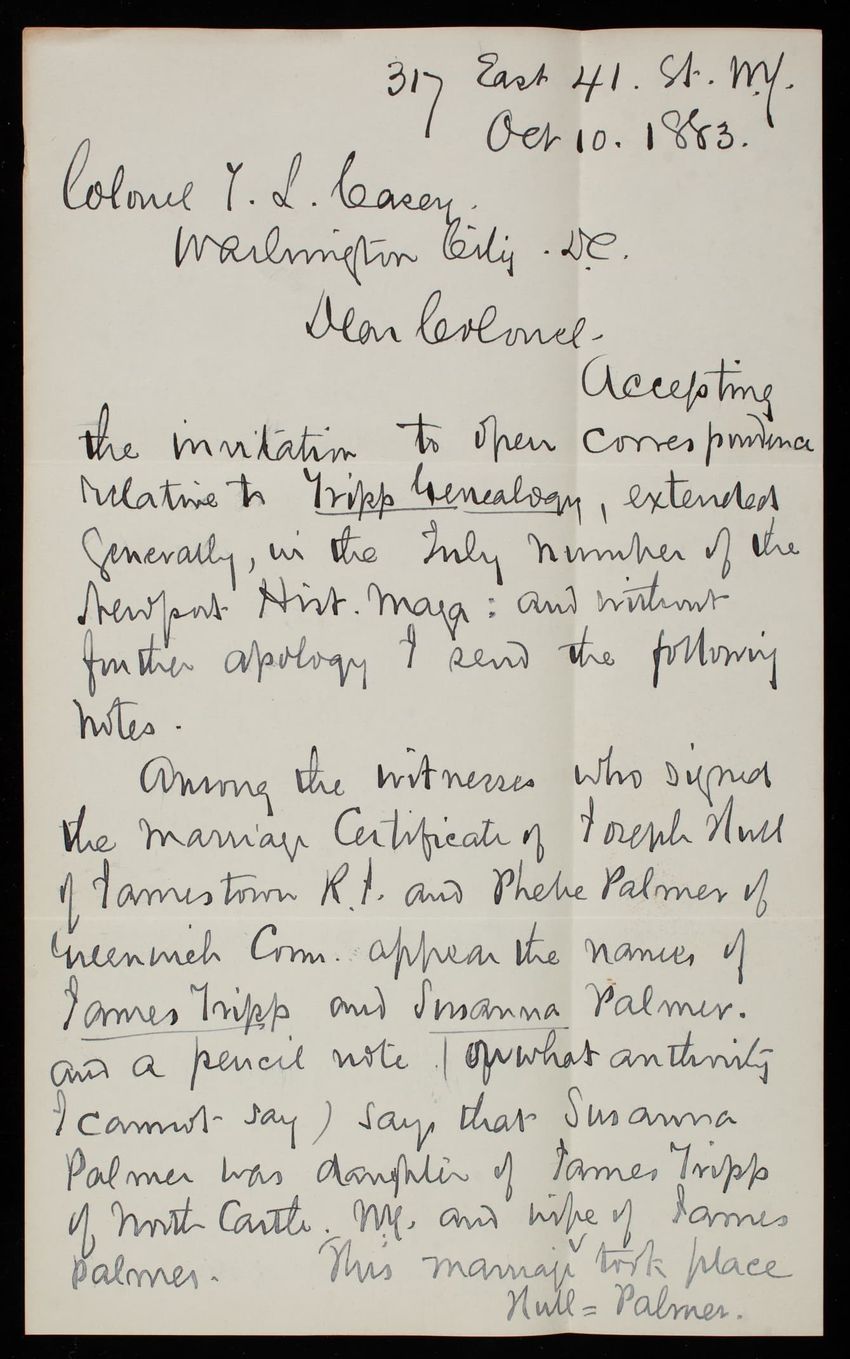 317 East 41. St. N.Y.
Oct 10. 1883.
Colonel T. L. Casey.
Washington City. D.C.
Dear Colonel.
Accepting
the invitation to open correspondence
relative to Tripp Genealogy, extended
generally, in the July number of the
Newport Hist. Maga: and without
further apology I send the following
notes.
Among the witnesses who signed
the Marriage Certificate of Joseph Hull
of Jamestown R.I. and Phebe Palmer of
Greenwich Conn. appear the names of
James Tripp and Susanna Palmer.
and a pencil note (of what authority
I cannot say) says that Susanna
Palmer was daughter of James Tripp
of North Castle. N.Y. and wife of James
Palmer. This marriage took place
Hull = Palmer.